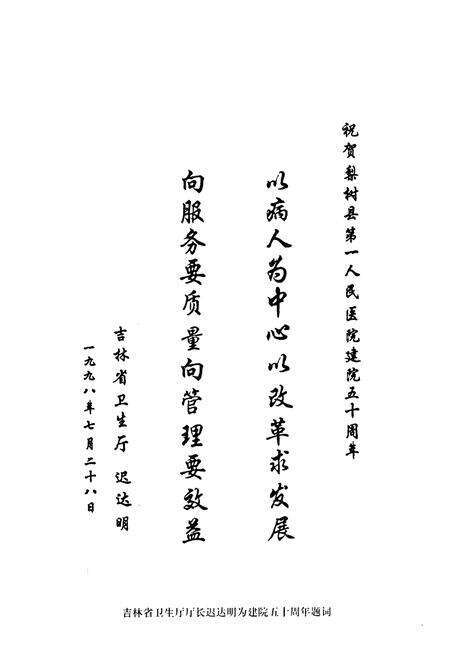 祝贺梨树县第一人民医院建院五十周年
以病人为中心以改革求发展
向服务要质量向管理要效益
吉林省卫生厅 迟达明
一九九八年七月二十八日
吉林省卫生厅厅长迟达明为建院五十周年题词